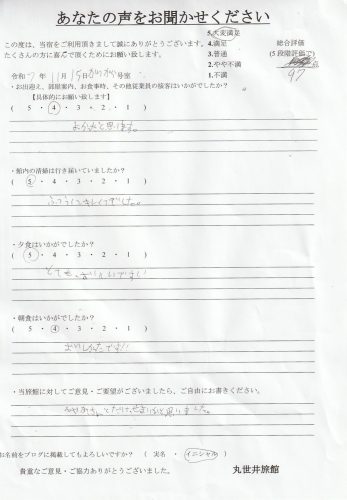 あなたの声をお聞かせください
この度は、当宿をご利用頂きまして誠にありがとうございます。
たくさんの方に喜んで頂くためにお願い致します。
5.大変満足
4.満足
3.普通
2.やや不満
1.不満
総合評価
(5段階評価で)
点
97
令和7年11月15日 号室
・お出迎え、部屋案内、お食事時、その他従業員の接客はいかがでしたか?
【具体的にお願い致します】
( 5 ・ 4 ・ 3 ・ 2 ・ 1 )
よかったと思います。
・館内の清掃は行き届いていましたか?
( 5 ・ 4 ・ 3 ・ 2 ・ 1 )
ふつうにキレイでした。
・夕食はいかがでしたか?
( 5 ・ 4 ・ 3 ・ 2 ・ 1 )
とても、おいしいです!!
・朝食はいかがでしたか?
( 5 ・ 4 ・ 3 ・ 2 ・ 1 )
おいしかったです!!
・当旅館に対してご意見・ご要望がございましたら、ご自由にお書きください。
と思いました。
お名前をブログに掲載してもよろしいですか? ( 実名 ・ イニシャル )
貴重なご意見・ご協力ありがとうございました。
丸世井旅館